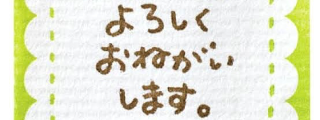 よろしく
おねがい
します。